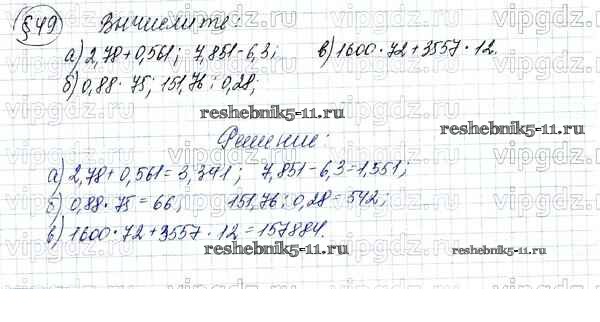 §49 Вычислите:
а) 2,78+0,561; 7,851-6,3; в) 1600·72+3557·12.
б) 0,88·75; 151,76:0,28;
reshebnik5-11.ru
reshebnik5-11.ru
Решение:
а) 2,78+0,561=3,341; 7,851-6,3=1,551;
б) 0,88·75=66; 151,76:0,28=542;
в) 1600·72+3557·12=157884.
reshebnik5-11.ru
reshebnik5-11.ru
vipgdz.com